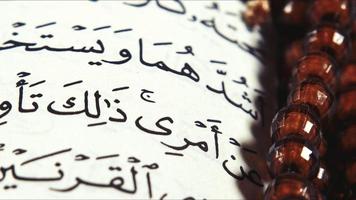 أَشُدَّهُمَا وَيَسْتَخْ
عَنْ أَمْرِى ۚ ذَٰلِكَ تَأْو
ٱلْقَرْنَيْنِ